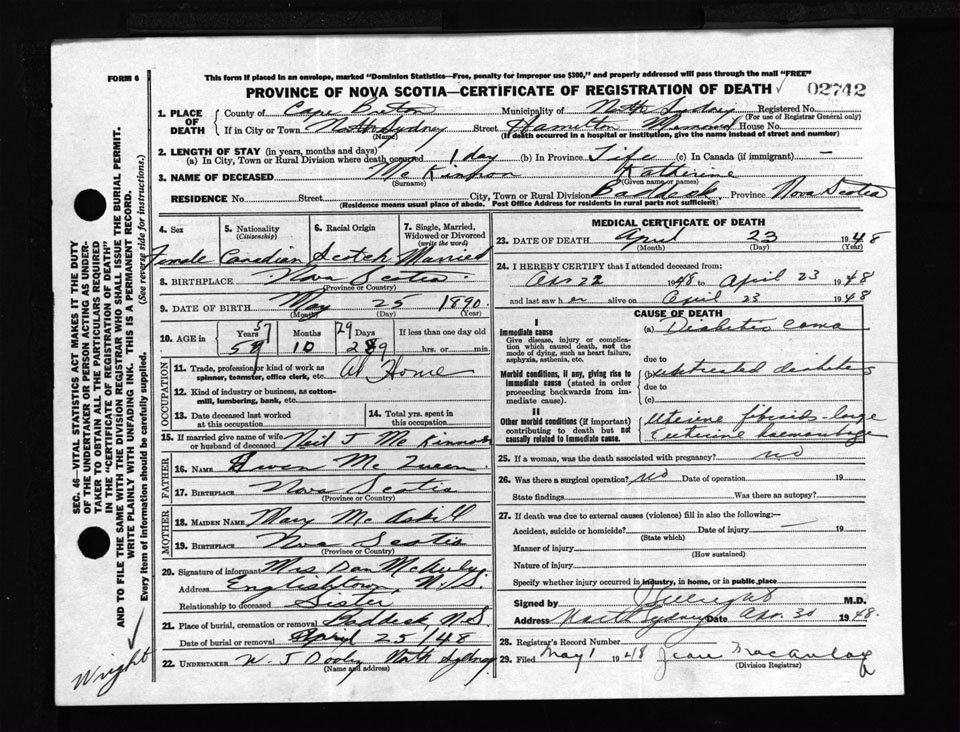 FORM 6
This form if placed in an envelope, marked "Dominion Statistics—Free, penalty for improper use $300," and properly addressed will pass through the mail "FREE"
PROVINCE OF NOVA SCOTIA—CERTIFICATE OF REGISTRATION OF DEATH 02742
1. PLACE OF DEATH
County of Cape Breton Municipality of North Sydney Registered No.
(For use of Registrar General only)
If in City or Town North Sydney Street Hamilton Memorial House No.
(Name) (If death occurred in a hospital or institution, give the name instead of street and number)
2. LENGTH OF STAY (in years, months and days)
(a) In City, Town or Rural Division where death occurred 1 day (b) In Province Life (c) In Canada (if immigrant) —
3. NAME OF DECEASED McKinnon Katherine
(Surname) (Given name or names)
RESIDENCE No. Street City, Town or Rural Division Baddeck Province Nova Scotia
(Residence means usual place of abode. Post Office Address for residents in rural parts not sufficient)
4. Sex 5. Nationality (Citizenship) 6. Racial Origin 7. Single, Married, Widowed or Divorced (write the word)
Female Canadian Scotch Married
8. BIRTHPLACE Nova Scotia
(Province or Country)
9. DATE OF BIRTH May 25 1890
(Month) (Day) (Year)
10. AGE in Years Months Days If less than one day old
57 29
10 hrs. or min.
OCCUPATION
11. Trade, profession or kind of work as spinner, teamster, office clerk, etc. At Home
12. Kind of industry or business, as cotton-mill, lumbering, bank, etc.
13. Date deceased last worked at this occupation
14. Total yrs. spent in this occupation
15. If married give name of wife or husband of deceased Neil J McKinnon
FATHER
16. NAME McQueen
17. BIRTHPLACE Nova Scotia
(Province or Country)
MOTHER
18. MAIDEN NAME Mary McAskill
19. BIRTHPLACE Nova Scotia
(Province or Country)
20. Signature of informant Mrs Dan McAulay
Address Englishtown, N.S.
Relationship to deceased Sister
21. Place of burial, cremation or removal Baddeck N.S
Date of burial or removal April 25/48
22. UNDERTAKER W. J Dooley North Sydney
(Name and address)
MEDICAL CERTIFICATE OF DEATH
23. DATE OF DEATH April 23 1948
(Month) (Day)
24. I HEREBY CERTIFY that I attended deceased from:
Apr 22 1948 to April 23 1948
and last saw her alive on April 23 1948
CAUSE OF DEATH
I
Immediate cause
Give disease, injury or complication which caused death, not the mode of dying, such as heart failure, asphyxia, asthenia, etc.
(a) Diabetic coma
due to
Morbid conditions, if any, giving rise to immediate cause (stated in order proceeding backwards from immediate cause).
(b) untreated diabetes
due to
(c)
II
Other morbid conditions (if important) contributing to death but not causally related to immediate cause.
Uterine fibroids - large
uterine haemorrhage
25. If a woman, was the death associated with pregnancy? no
26. Was there a surgical operation? no Date of operation 19
State findings Was there an autopsy?
27. If death was due to external causes (violence) fill in also the following:—
Accident, suicide or homicide? Date of injury — 19
(State which)
Manner of injury
(How sustained)
Nature of injury
Specify whether injury occurred in industry, in home, or in public place
Signed by M.D.
Address North Sydney Date Apr. 30 1948
28. Registrar's Record Number
29. Filed May 1 1948 Jean MacAulay
(Division Registrar)
SEC. 46—VITAL STATISTICS ACT MAKES IT THE DUTY
OF THE UNDERTAKER OR PERSON ACTING AS UNDER-
TAKER TO OBTAIN ALL THE PARTICULARS REQUIRED
IN THE "CERTIFICATE OF REGISTRATION OF DEATH"
AND TO FILE THE SAME WITH THE DIVISION REGISTRAR WHO SHALL ISSUE THE BURIAL PERMIT.
WRITE PLAINLY WITH UNFADING INK. THIS IS A PERMANENT RECORD.
Every item of information should be carefully supplied. (See reverse side for instructions.)
Wright